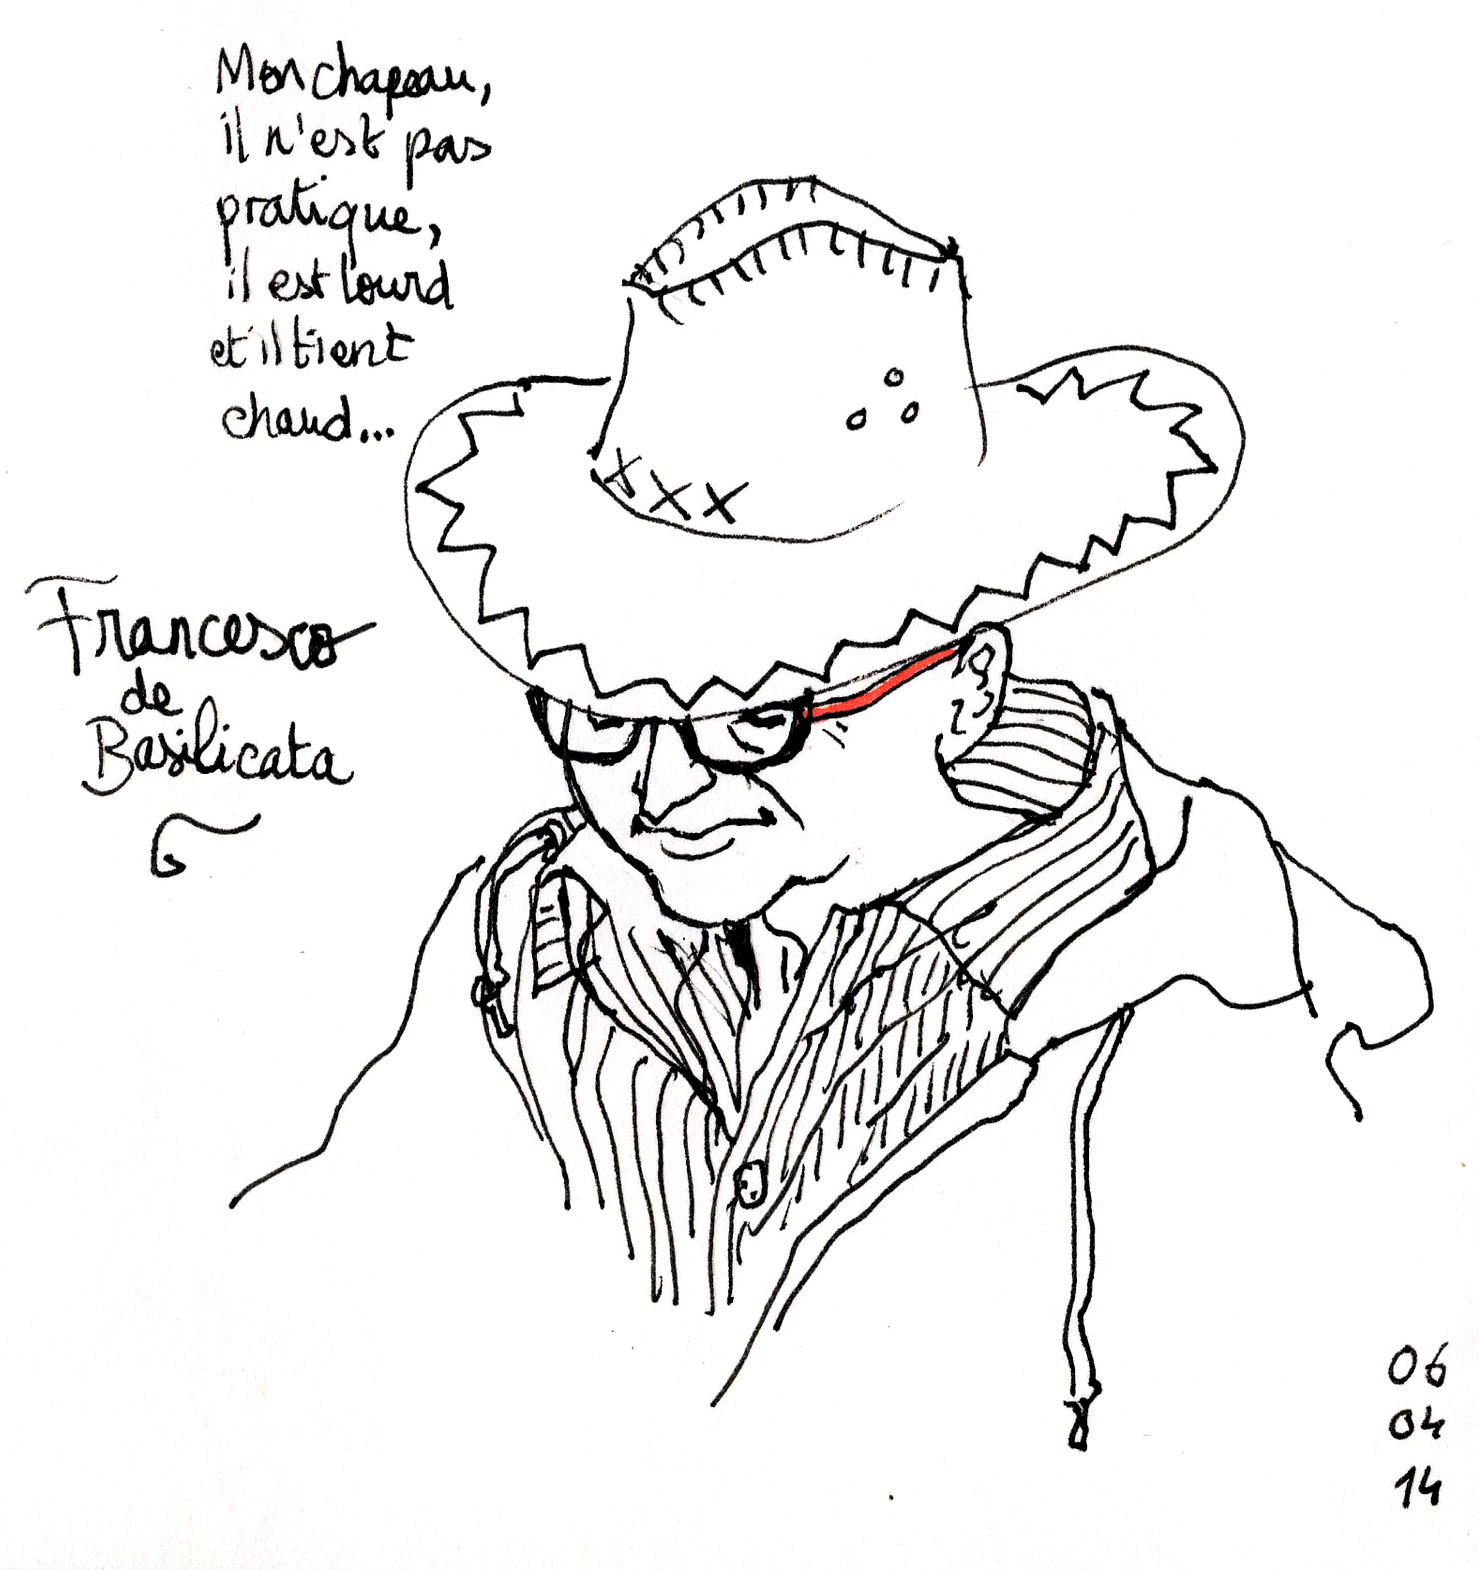 Mon chapeau,
il n'est pas
pratique,
il est lourd
et il tient
chaud...
Francesco
de
Basilicata
06
04
14